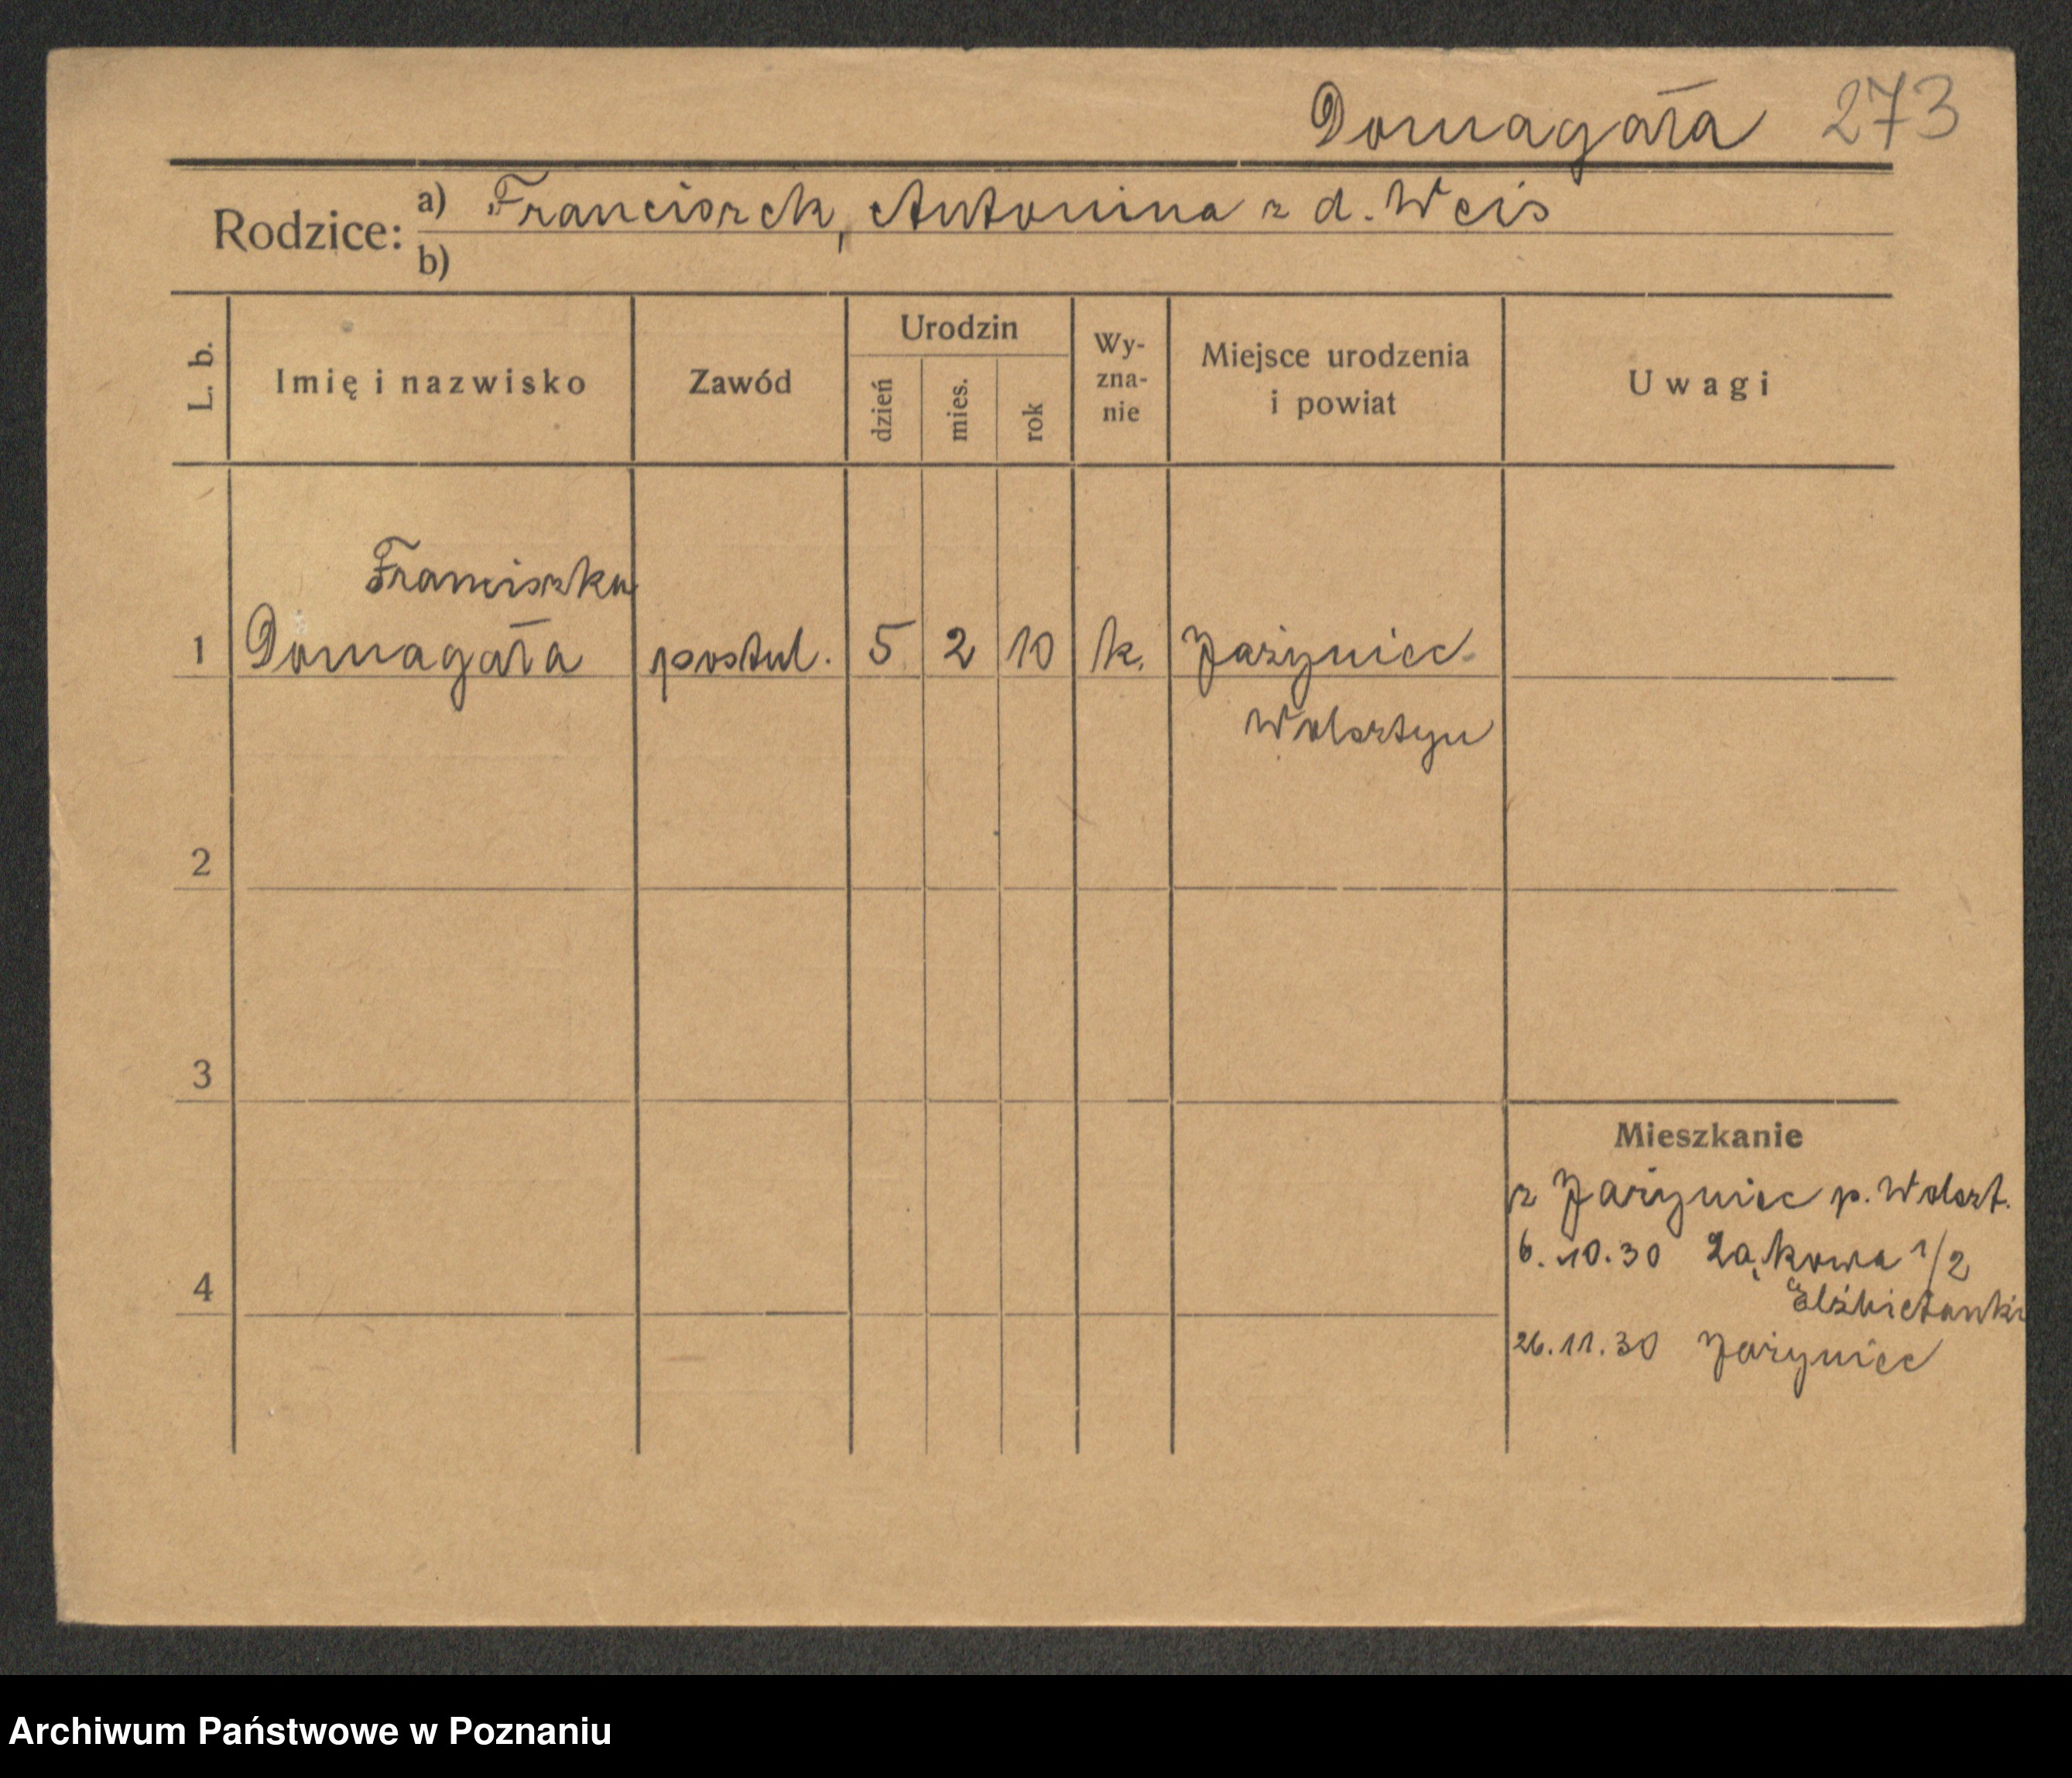 Domagała 273
Rodzice: a) Franciszek, Antonina z d. Weis
b)
L. b. Imię i nazwisko Zawód Urodzin dzień mies. rok Wy-zna-nie Miejsce urodzenia i powiat Uwagi
Franciszka
1 Domagała postul. 5 2 10 k. Jażyniec
Wolsztyn
2
3
Mieszkanie
z Jażyniec p. Wolszt.
6.10.30 Łąkowa 1/2
4
Elżbietanki
26.11.30 Jażyniec
Archiwum Państwowe w Poznaniu